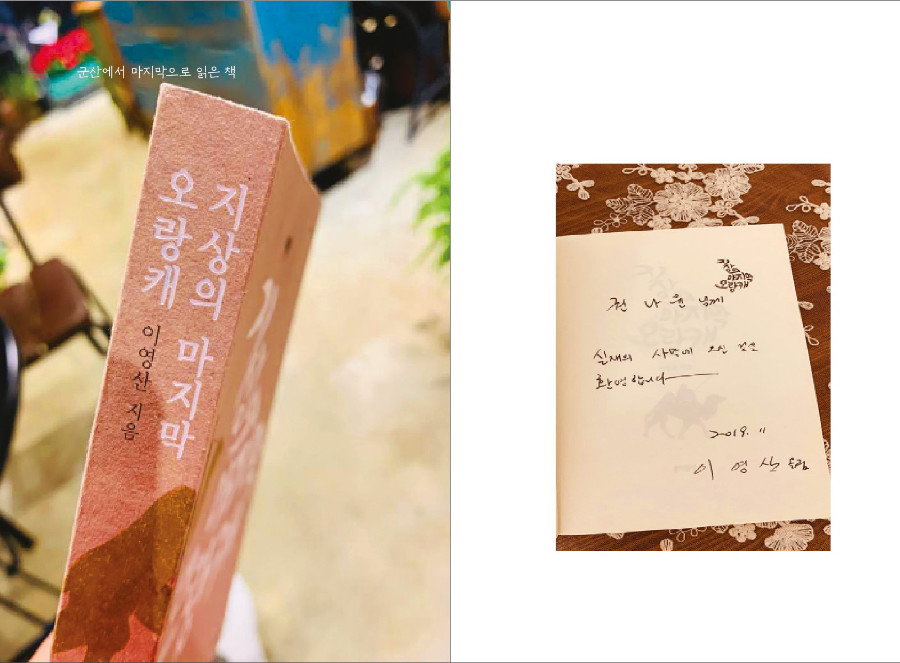 군산에서 마지막으로 읽은 책
지상의 마지막
오랑캐
이영산 지음
지상의
마지막
오랑캐
권 나 원 님께
실재의 사막에 오신 것을
환영합니다
2019. 11
이 영 산 드림